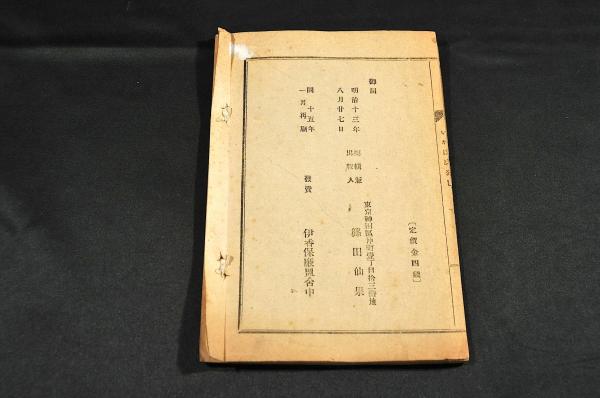 〔定價金四錢〕
御届
明治十三年
八月廿七日
同十五年
一月再刷
編輯兼
出版人
東京神田區仲町壹丁目拾三番地
篠田仙果
發賣
伊香保
會中